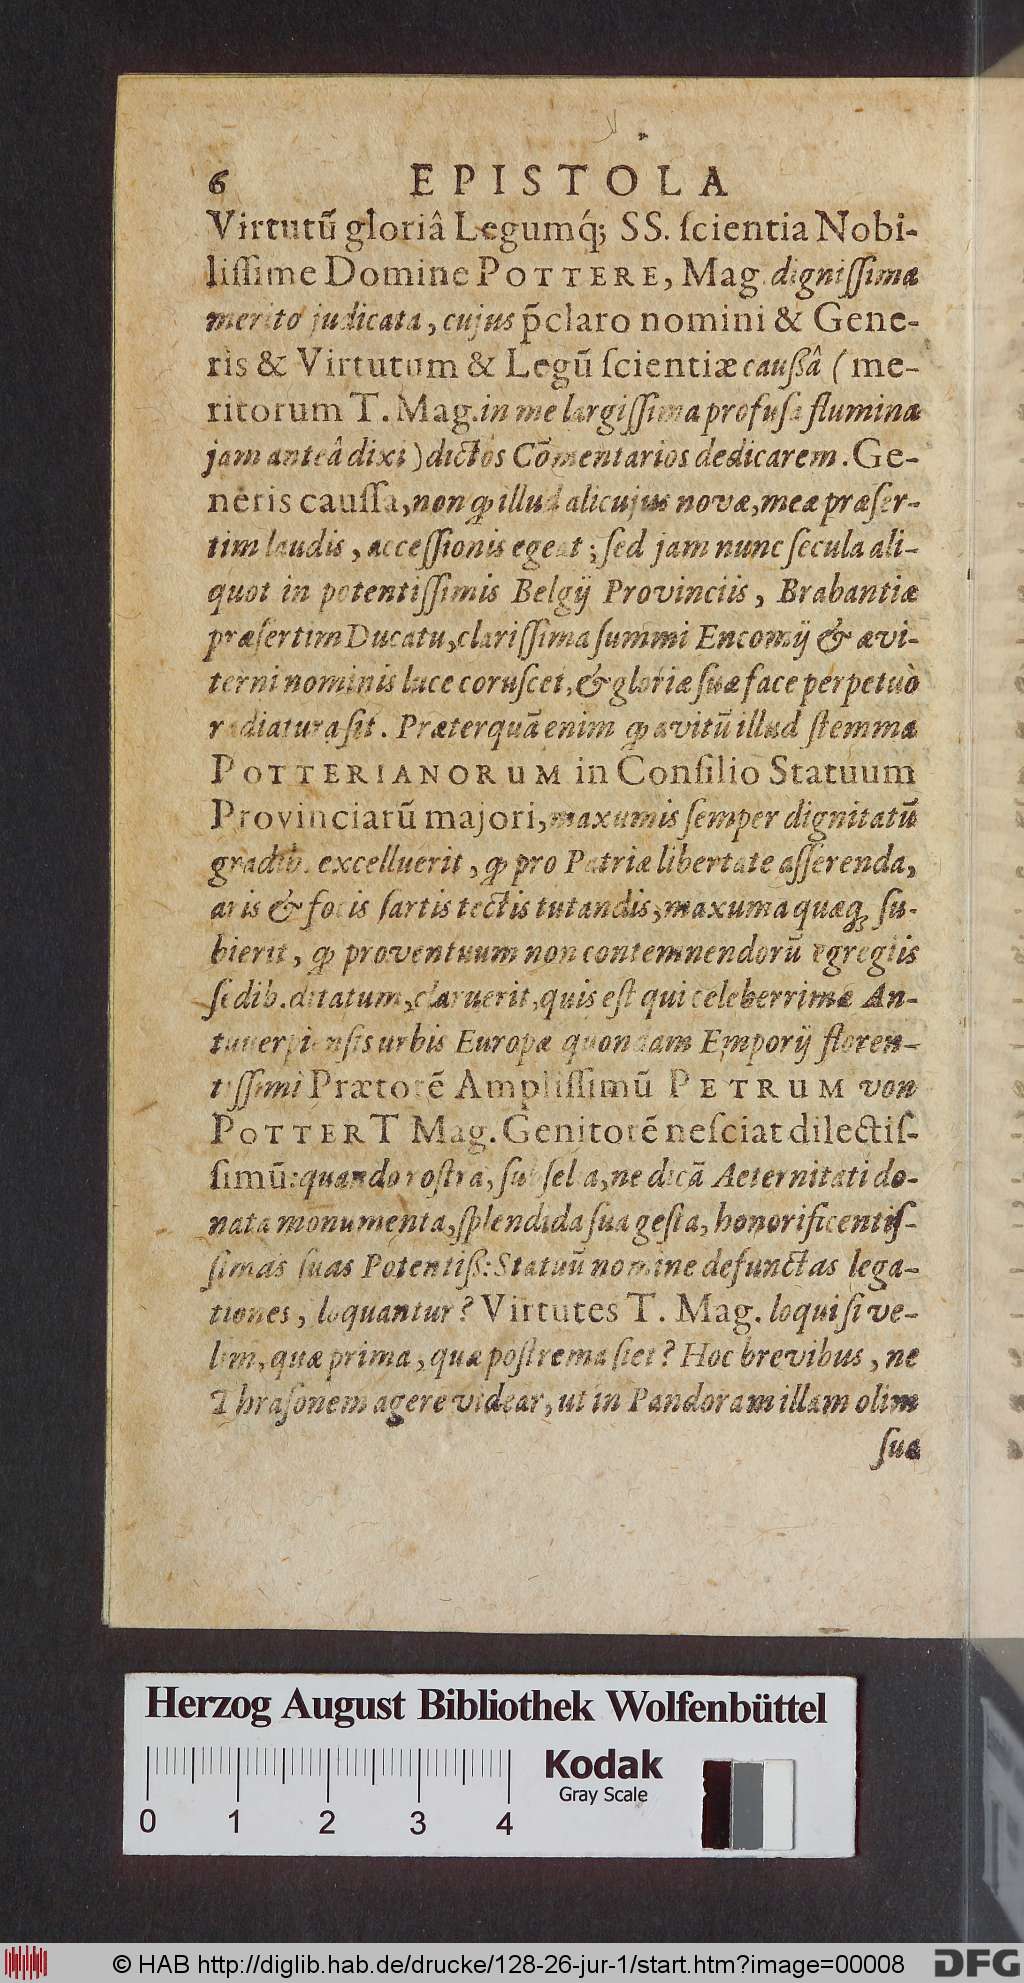 6 EPISTOLA
Virtutū gloriâ Legumq́; SS. ſcientia Nobi-
liſſime Domine POTTERE, Mag. digniſſima
merito judicata, cujus p̄claro nomini & Gene-
ris & Virtutum & Legū ſcientiæ cauſsâ (me-
ritorum T. Mag. in me largiſſima profuſa flumina
jam anteâ dixi) dictos Cōmentarios dedicarem. Ge-
neris cauſſa, non ꝙ illud alicujus novæ, meæ præſer-
tim laudis, acceſſionis egeat; ſed jam nunc ſecula ali-
quot in potentiſſimis Belgij Provinciis, Brabantiæ
præſertim Ducatu, clariſſima ſummi Encomij & ævi-
terni nominis luce coruſcet, & gloriæ ſuæ face perpetuò
radiatura ſit. Præterquā enim ꝙ avitū illud ſtemma
POTTERIANORUM in Conſilio Statuum
Provinciarū majori, maxumis ſemper dignitatū
gradib. excelluerit, ꝙ pro Patriæ libertate aſſerenda,
aris & focis ſartis tectis tutandis, maxuma quæq; ſu-
bierit, ꝙ proventuum non contemnendorū egregiis
ſedib. ditatum, claruerit, quis eſt qui celeberrimæ An-
tuverpienſis urbis Europæ quondam Emporij floren-
tiſſimi Prætorē Ampliſſimū PETRUM von
POTTER T Mag. Genitorē neſciat dilectiſ-
ſimū: quando roſtra, ſubſellia, ne dicā Aeternitati do-
nata monumenta, ſplendida ſua geſta, honorificentiſ-
ſimas ſuas Potentiß: Statuū nomine defunctas lega-
tiones, loquantur? Virtutes T. Mag. loqui ſi ve-
lim, quæ prima, quæ poſtrema ſiet? Hoc brevibus, ne
Thraſonem agere videar, ut in Pandoram illam olim
ſuæ
Herzog August Bibliothek Wolfenbüttel
Kodak
Gray Scale
0 1 2 3 4
© HAB http://diglib.hab.de/drucke/128-26-jur-1/start.htm?image=00008 DFG